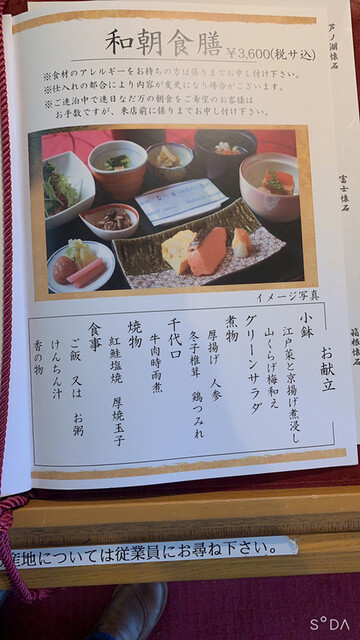 和朝食膳 ¥3,600(税サ込)
※食材のアレルギーをお持ちの方は係りまでお申し付け下さい。
※仕入れの都合により内容が変更になり場合がございます。
※ご連泊中で連日なだ万の朝食をご希望のお客様は
お手数ですが、来店前に係りまでお申し付け下さい。
イメージ写真
お献立
小鉢
江戸菜と京揚げ煮浸し
山くらげ梅和え
グリーンサラダ
煮物
厚揚げ 人参
冬子椎茸 鶏つみれ
千代口
牛肉時雨煮
焼物
紅鮭塩焼 厚焼玉子
食事
ご飯 又は お粥
けんちん汁
香の物
芦ノ湖懐石
富士懐石
箱根懐石
産地については従業員にお尋ね下さい。
SODA